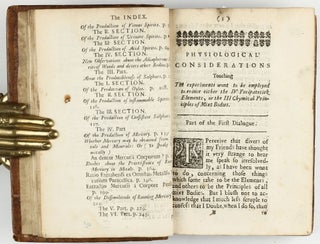 The INDEX.
Of the Production of Vinous Spirits, p.
The II. SECTION.
Of the Production of Urinous Spirits, p.
The III. SECTION.
Of the Production of Acid Spirits, p.
The IV. SECTION.
New Observations about the
of Woods and divers other Bodies.
The III. Part.
About the Producibleness of Sulphurs, p.
The I. SECTION.
Of the Production of Oyles, p.
The II. SECTION.
Of the Production of Inflammable Spirits,
The III. SECTION.
Of the Production of Consistent Sulphurs,
The IV. Part
Of the Production of Mercury. p.
Whether Mercury may be obtained from
and Minerals: Or
An dentur Mercurii Corporum? p.
Doubts about the Præexistence of
in Metals. p.
Extractio Mercurii a Corpore
p.
Of the Dissimilitude of Running
p.
The V. Part p. 229.
The VI. Part. p. 245.
(1)
PHYSIOLOGICAL
CONSIDERATIONS
Touching
THE experiments wont to be employed
to evince either the IV Peripatetick
Elements, or the III Chymical Principles
of Mixt Bodies.
Part of the First Dialogue.
I Perceive that divers of
my Friends have thought
it very strange to hear
me speak so irresolvedly,
as I have been wont
to do, concerning those things
which some take to be the Elements,
and others to be the Principles of all
mixt Bodies. But I blush not to acknowledge
that I much less scruple to
confess that I Doubt, when I do so, that
B